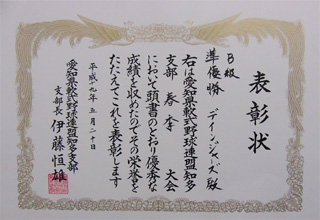 表彰状
B級
準優勝 デインジャーズ殿
右は愛知県軟式野球連盟知多
支部 春季 大会
において頭書のとおり優秀な
成績を収めたのでその栄誉を
たたえてこれを表彰します
平成十九年五月二十日
愛知県軟式野球連盟知多支部
支部長 伊藤恒雄